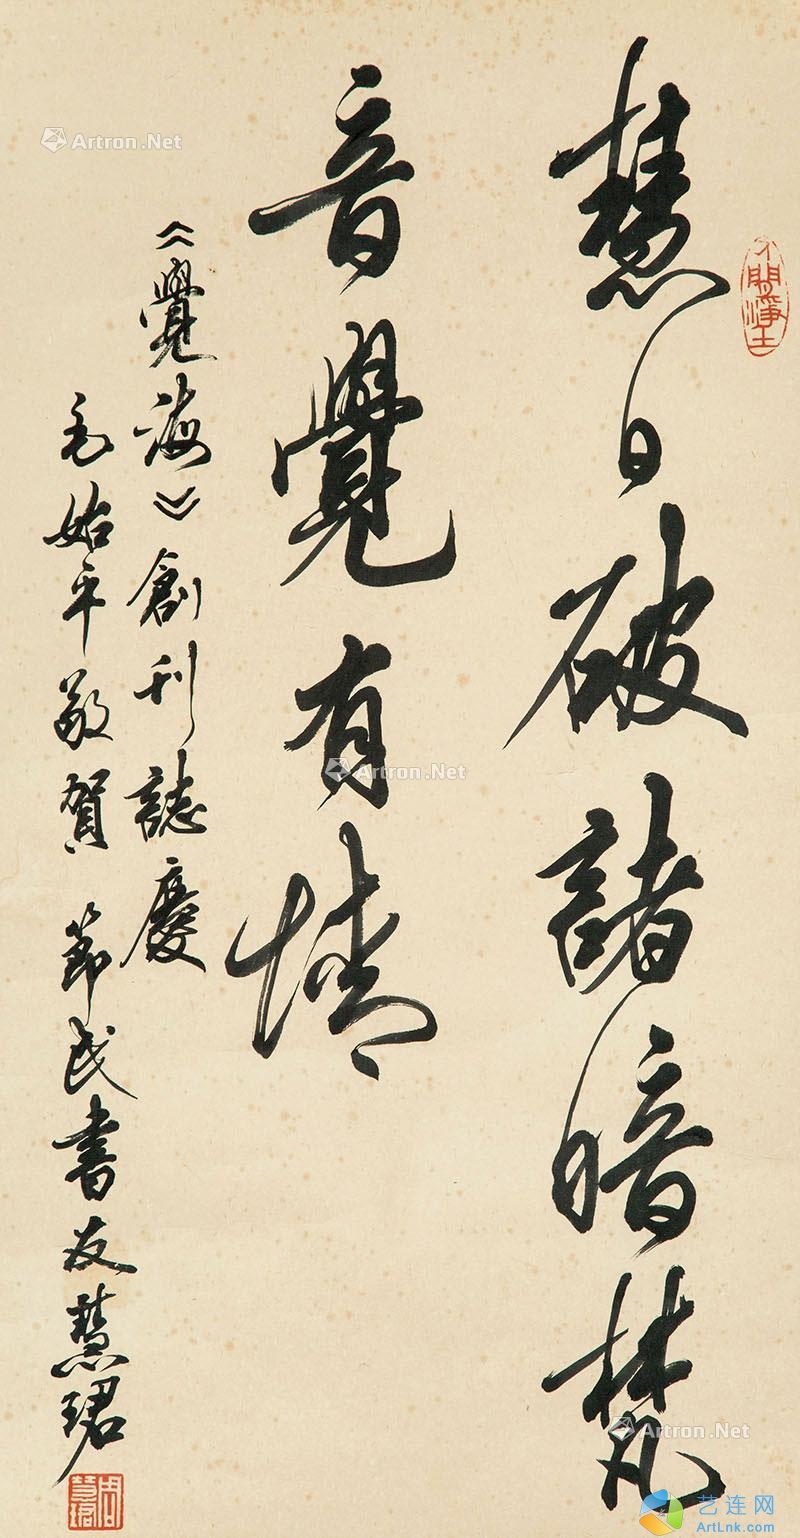 慧日破諸暗梵
音覺有情
《覺海》創刊誌慶
毛始平敬賀 節民書友慧珺
人間淨土
周慧珺
Artron.Net
Artron.Net
Artron.Net
艺连网
ArtLnk.com